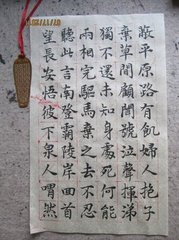 蔽平原路有飢婦人抱子
棄草間顧聞號泣聲揮涕
獨不還未知身死處何能
兩相完驅馬棄之去不忍
聽此言南登霸陵岸回首
望長安悟彼下泉人喟然